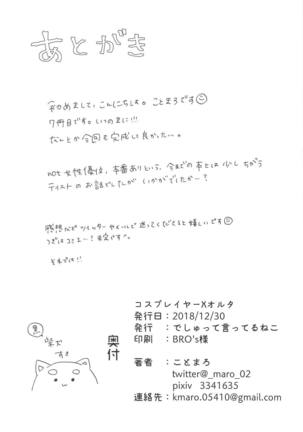 あとがき
初めまして、こんにちは。ことまろです
7冊目です。いつのまに!!!
なんとか今回も完成して良かった…。
not女性優位、本番ありという、今までの本とは少しちがう
テイストのお話でしたがいかがでしたか〜?
感想などツイッターやメールで送ってくださると嬉しいです
つぎはコミュー!未定です。
それでは!!
黒
柴犬
すき
奥付
コスプレイヤーXオルタ
発行日:2018/12/30
発行 :でしゅって言ってるねこ
印刷 :BRO's様
著者 :ことまろ
twitter@_maro_02
pixiv 3341635
連絡先:kmaro.05410@gmail.com